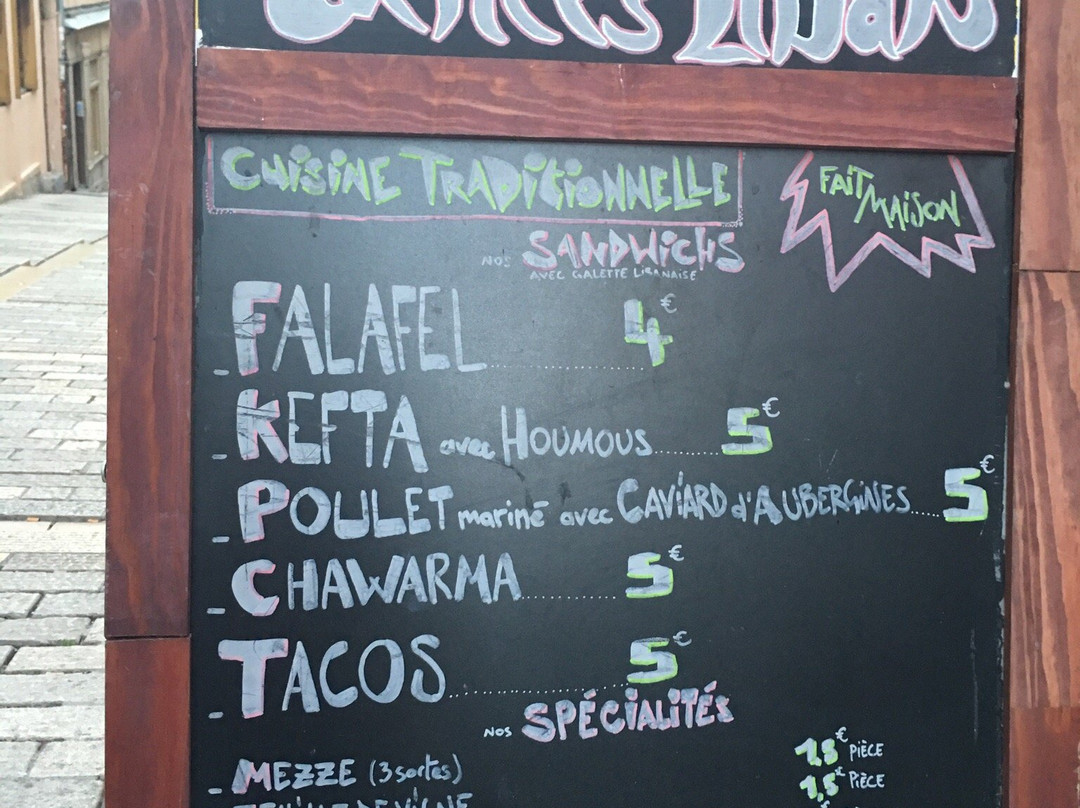 LIBAN
CUISINE TRADITIONNELLE
FAIT MAISON
NOS SANDWICHS
AVEC GALETTE LIBANAISE
_FALAFEL 4€
_KEFTA avec HOUMOUS 5€
_POULET mariné avec CAVIARD d'AUBERGINES 5€
_CHAWARMA 5€
_TACOS 5€
NOS SPÉCIALITÉS
_MEZZE (3 sortes) 1,8€ PIÈCE
1,5€ PIÈCE